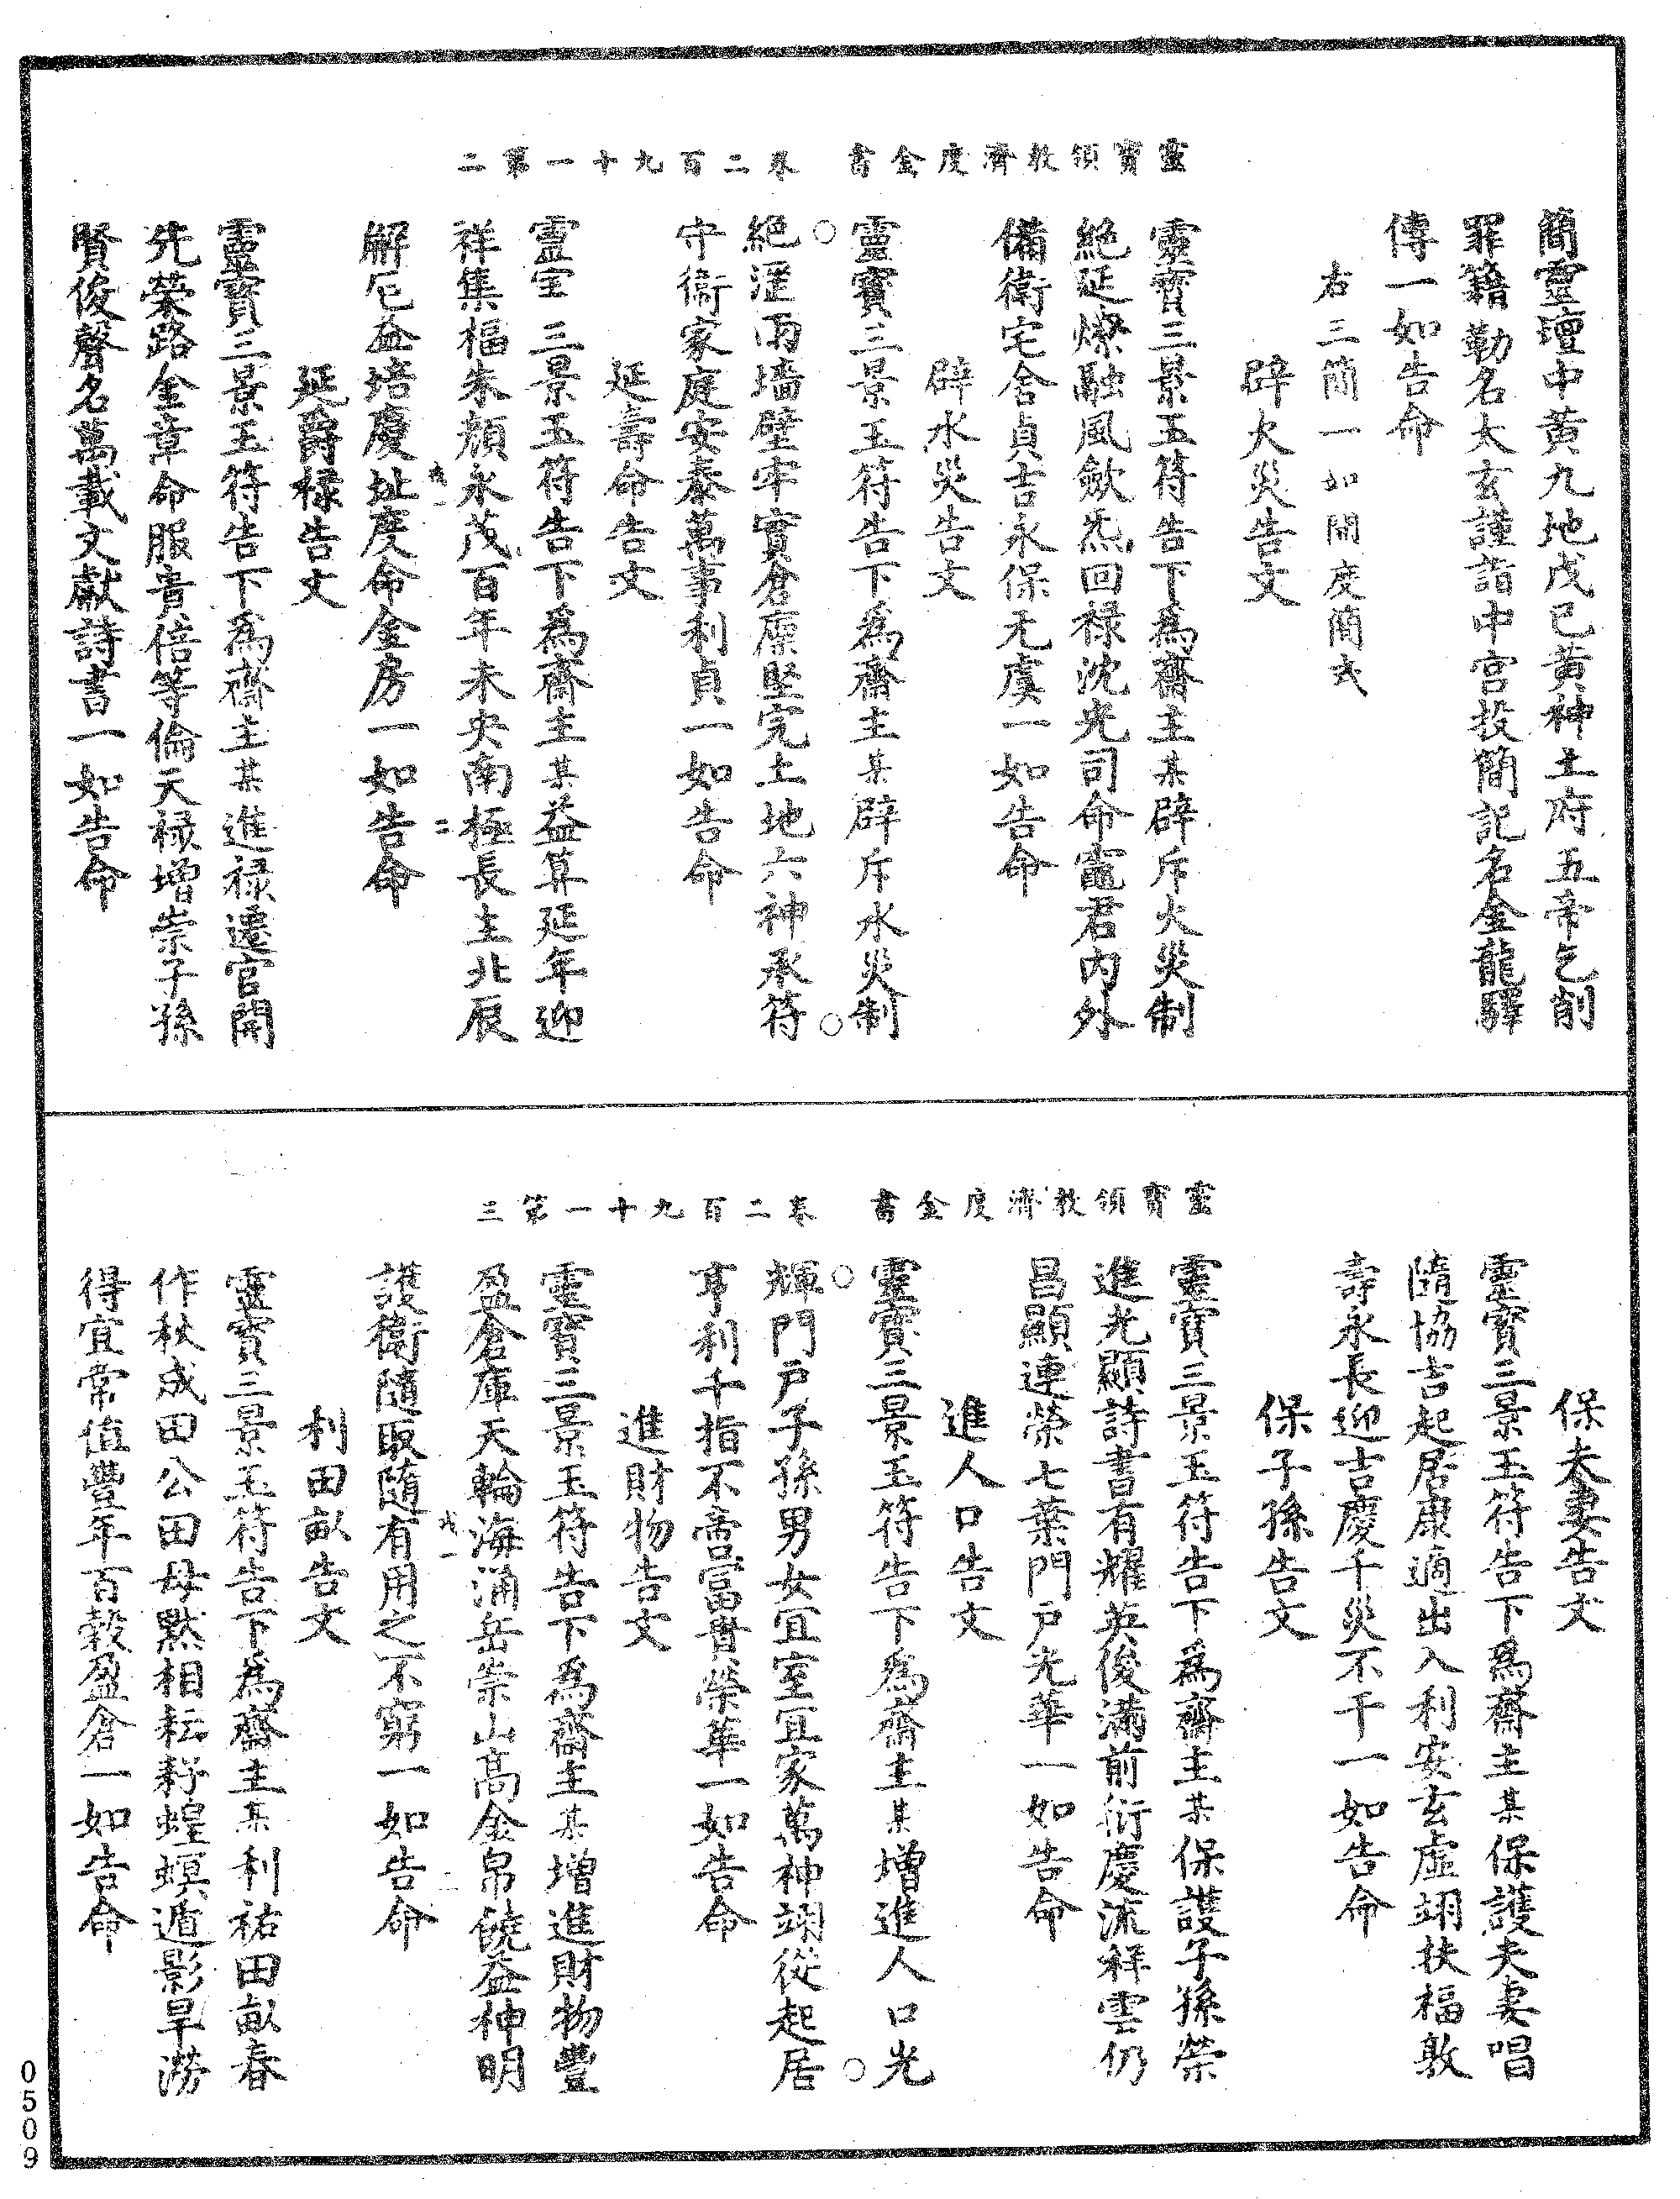 靈寶領教濟度金書　卷二百九十一第二
簡靈壇中黃九地戊己黃神土府五帝乞削
罪籍勒名太玄謹詣中宮投簡記名金龍驛
傳一如告命
右三簡一如開度簡式
辟火災告文
靈寶三景玉符告下爲齋主某辟斥火災制
絕延燎融風斂炁回祿沈光司命竈君內外
備衛宅舍貞吉永保无虞一如告命
辟水災告文
靈寶三景玉符告下爲齋主某辟斥水災制
絕淫雨墻壁牢實倉廩堅完土地六神承符
守衛家庭安泰萬事利貞一如告命
延壽命告文
靈宝三景玉符告下爲齋主某益算延年迎
祥集福朱顏永茂百年未央南極長主北辰
解厄益培慶址度命金房一如告命
延爵祿告文
靈寶三景玉符告下爲齋主某進祿遷官開
先榮路金章命服貴倍等倫天祿增崇子孫
賢俊聲名萬載文獻詩書一如告命
靈寶領教濟度金書　卷二百九十一第三
保夫妻告文
靈寶三景玉符告下爲齋主某保護夫妻唱
隨協吉起居康適出入利安玄虛翊扶福敷
壽永長迎吉慶千災不干一如告命
保子孫告文
靈寶三景玉符告下爲齋主某保護子孫榮
進光顯詩書有耀英俊滿前衍慶流祥雲仍
昌顯連榮七葉門戶光華一如告命
進人口告文
靈寶三景玉符告下爲齋主某增進人口光
輝門戶子孫男女宜室宜家萬神翊從起居
亨利千指不啻富貴榮華一如告命
進財物告文
靈寶三景玉符告下爲齋主某增進財物豐
盈倉庫天輪海涌岳崇山高金帛饒益神明
護衛隨取隨有用之不窮一如告命
利田畝告文
靈寶三景玉符告下爲齋主某利祐田畝春
作秋成田公田母默相耘耔蝗螟遁影旱澇
得宜常值豐年百穀盈倉一如告命
0509